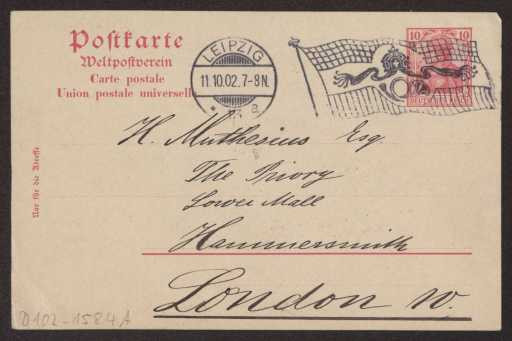 Postkarte
Weltpostverein
Carte postale
Union postale universelle
LEIPZIG
11.10.02.7-8N.
10 10
H. Muthesius Esq.
The Priory
Lower Mall
Hammersmith
London W.
Nur für die Adresse
D102-1584A